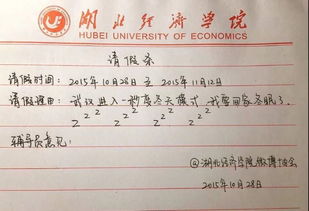 湖北经济学院
HUBEI UNIVERSITY OF ECONOMICS
请假条
请假时间：2015年10月28日至2015年11月12日
请假理由：武汉进入一秒变冬天模式，我要回家冬眠了。
z z z z z z z z z z z z
辅导员意见：
@湖北经济学院微博协会
2015年10月28日